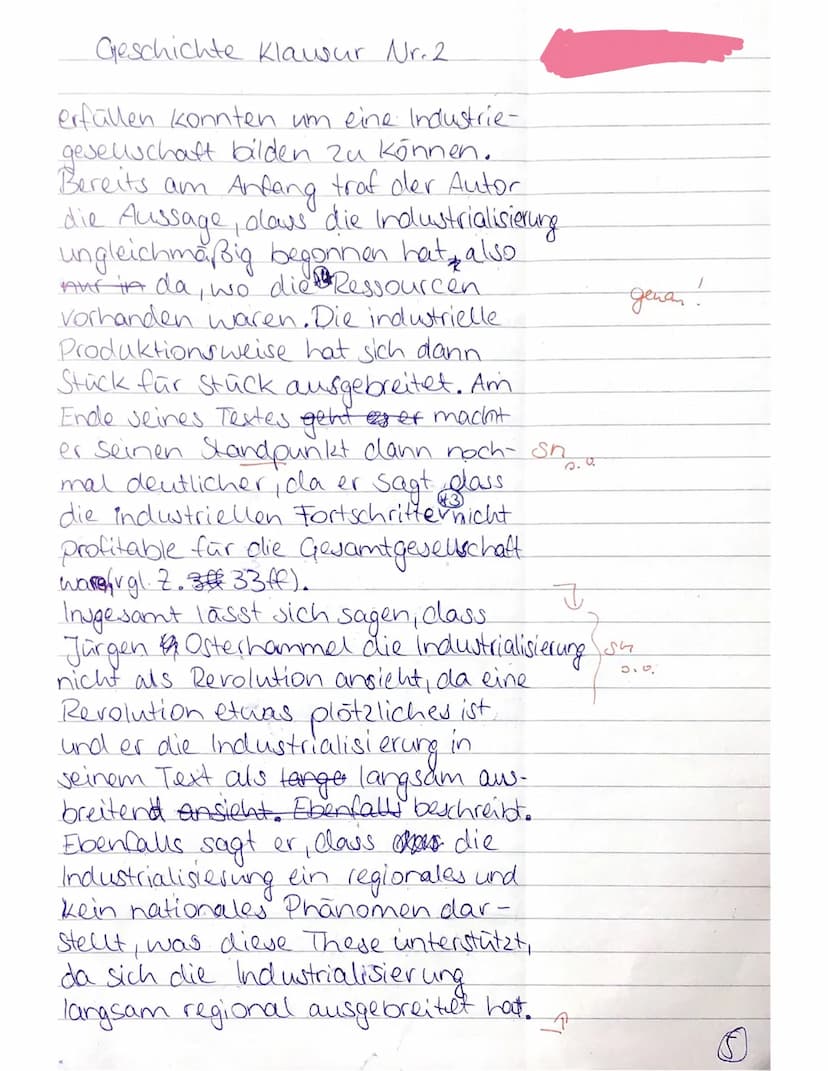 Geschichte Klausur Nr. 2
erfüllen konnten um eine Industrie-
gesellschaft bilden zu können.
Bereits am Anfang traf der Autor
die Aussage, dass die Industrialisierung
ungleichmäßig begonnen hat, also
nur in da, wo die Ressourcen
vorhanden waren. Die industrielle
Produktionsweise hat sich dann
Stück für Stück ausgebreitet. Am
genau!
Ende seines Textes geht es er macht
er seinen Standpunkt dann noch-
sn
s. o.
mal deutlicher, da er sagt, dass
die industriellen Fortschritte *3 nicht
profitable für die Gesamtgesellschaft
ware (vgl. Z. 33ff).
Insgesamt lässt sich sagen, dass
Jürgen Osterhammel die Industrialisierung
sn
s. o.
nicht als Revolution ansieht, da eine
Revolution etwas plötzliches ist
und er die Industrialisierung in
seinem Text als lange langsam aus-
breitend ansieht. Ebenfalls beschreibt.
Ebenfalls sagt er, dass die
Industrialisierung ein regionales und
kein nationales Phänomen dar-
stellt, was diese These unterstützt,
da sich die Industrialisierung
langsam regional ausgebreitet hat.
5